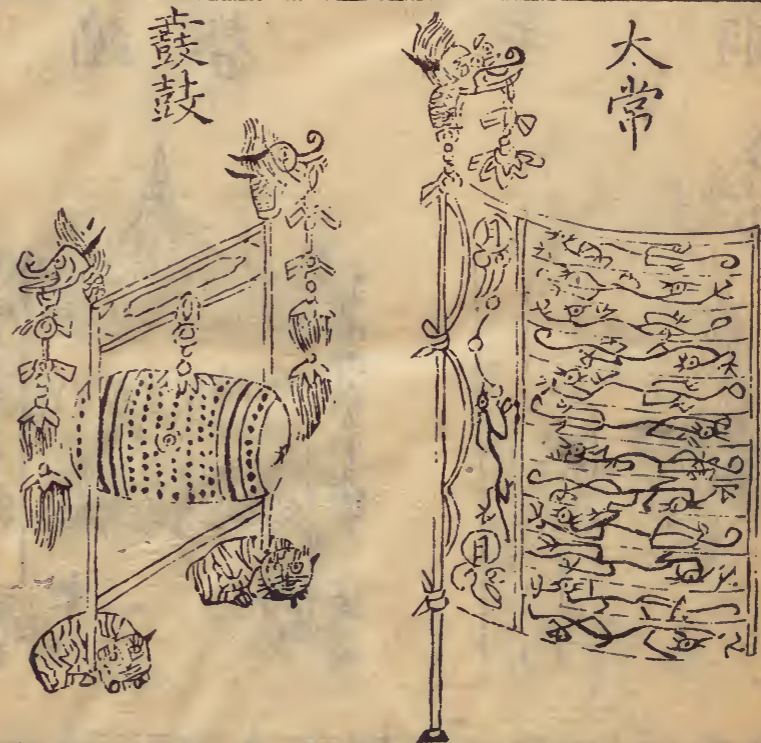 太常
月
月
鼖鼓